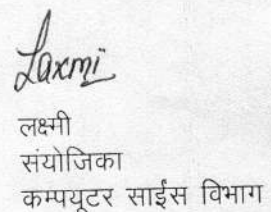 Laxmi
लक्ष्मी
संयोजिका
कम्पयूटर साईंस विभाग